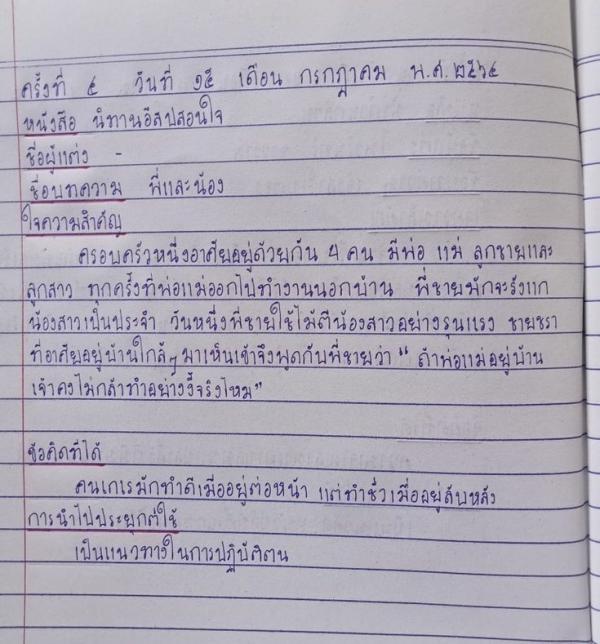 ครั้งที่ ๔ วันที่ ๑๕ เดือน กรกฎาคม พ.ศ.๒๕๖๔
หนังสือ นิทานอีสปสอนใจ
ชื่อผู้แต่ง -
ชื่อบทความ พี่และน้อง
ใจความสำคัญ
ครอบครัวหนึ่งอาศัยอยู่ด้วยกัน 4 คน มีพ่อ แม่ ลูกชายและ
ลูกสาว ทุกครั้งที่พ่อแม่ออกไปทำงานนอกบ้าน พี่ชายมักจะรังแก
น้องสาวเป็นประจำ วันหนึ่งพี่ชายใช้ไม้ตีน้องสาวอย่างรุนแรง ชายชรา
ที่อาศัยอยู่บ้านใกล้ๆ มาเห็นเข้าจึงพูดกับพี่ชายว่า “ ถ้าพ่อแม่อยู่บ้าน
เจ้าคงไม่กล้าทำอย่างงี้จริงไหม”
ข้อคิดที่ได้
คนเกเรมักทำดีเมื่ออยู่ต่อหน้า แต่ทำชั่วเมื่ออยู่ลับหลัง
การนำไปประยุกต์ใช้
เป็นแนวทางในการปฏิบัติตน